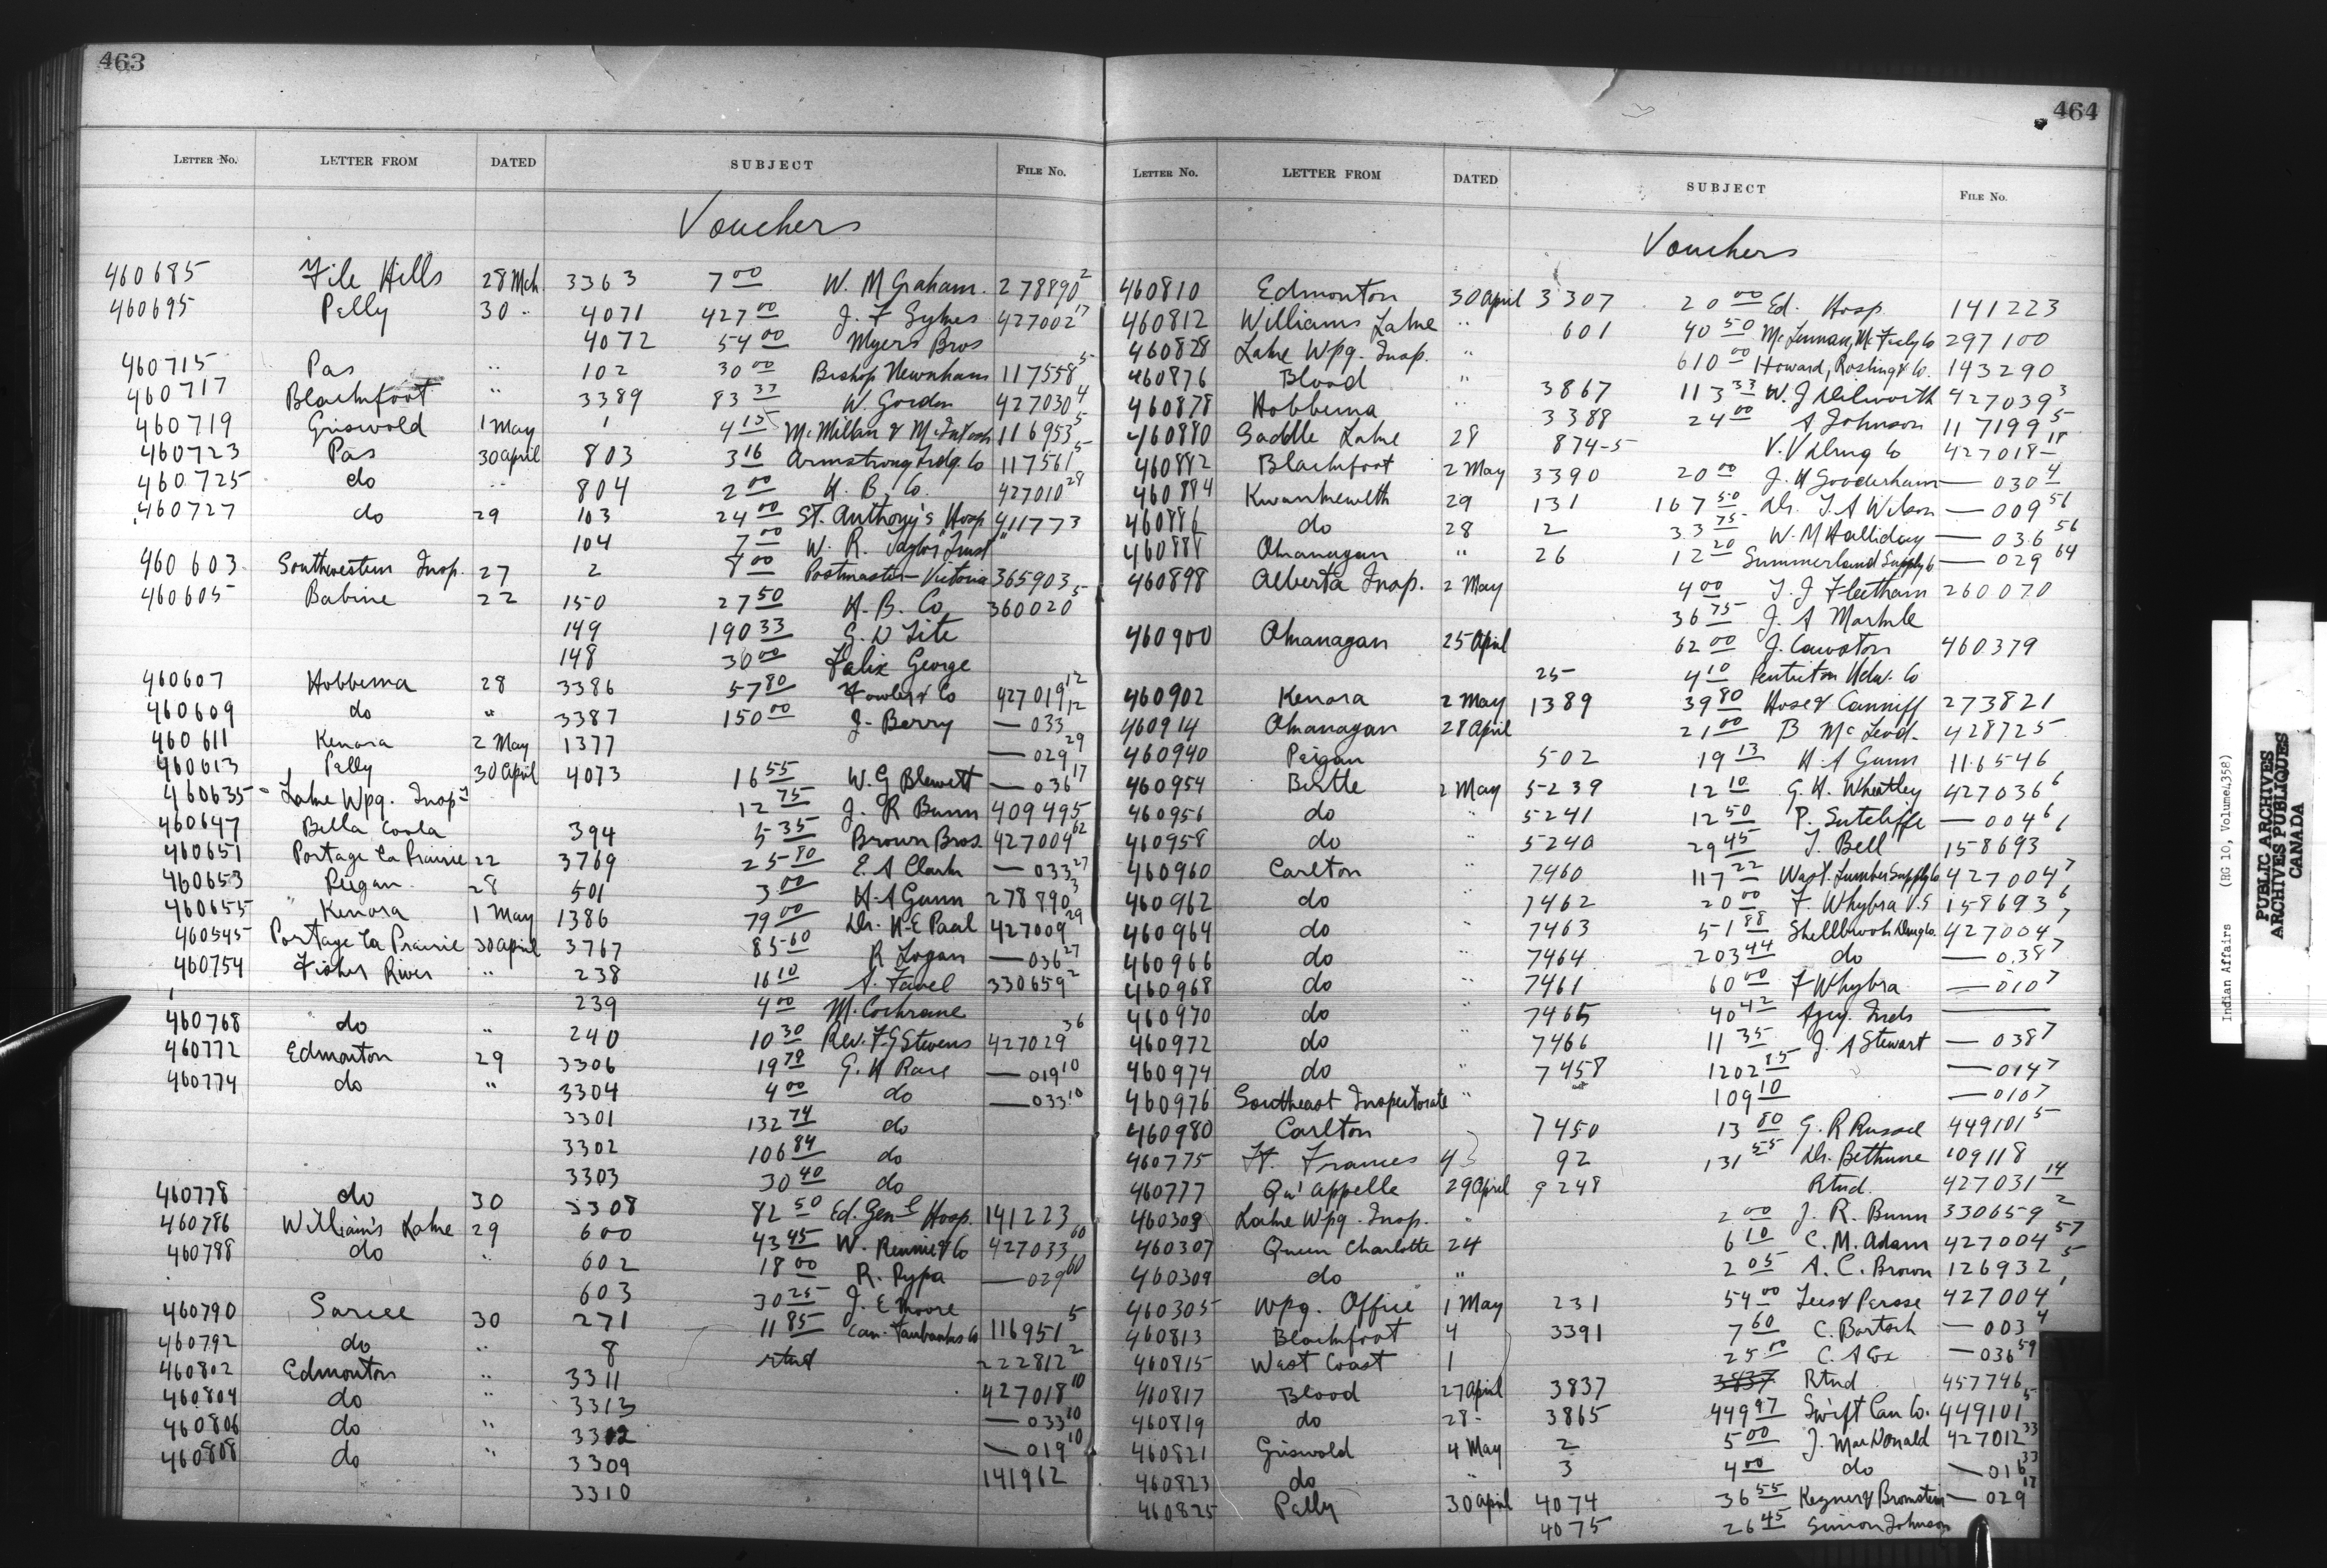 463
LETTER NO. LETTER FROM DATED SUBJECT FILE NO.
Vouchers
460685 File Hills 28 Mch. 3363 7 00 W. M Graham. 278890 2
460695 Pelly 30 " 4071 427 00 J. F Sykes 427002 17
4072 54 00 Myers Bros
460715 Pas " 102 30 00 Bishop Newnham 117558 5
460717 Blackfoot " 3389 83 33 W. Gordon 427030 4
460719 Griswold 1 May 1 4 15 McMillan & McIntosh 116953 5
460723 Pas 30 April 803 3 16 Armstrong Trdg. Co 117561 5
460725 do " 804 2 00 H. B. Co. 427010 28
460727 do 29 103 24 00 St. Anthony's Hosp 411773
104 7 00 W. R. Taylor Trust "
460603 Southwestern Insp. 27 2 8 00 Postmaster - Victoria 365903
460605 Babine 22 150 27 50 H. B. Co 360020 5
149 190 33 G. D Tite
148 30 00 Felix George
460607 Hobbema 28 3386 57 80 Fowler & Co 427019 12
460609 do " 3387 150 00 J. Berry — 033 12
460611 Kenora 2 May 1377 — 029 29
460613 Pelly 30 April 4073 16 55 W. G Blewett — 036 17
460635 Lake Wpg. Insp 12 75 J. R Bunn 409495
460647 Bella Coola 394 5 35 Brown Bros. 427004 62
460651 Portage la Prairie 22 3769 25 80 E. A Clark — 033 27
460653 Peigan 28 501 3 00 H. A Gunn 278890 3
460655 Kenora 1 May 1386 79 00 Dr. H. E Paul 427009 29
460545 Portage la Prairie 30 April 3767 85 60 R Logan — 036 27
460754 Fisher River " 238 16 10 A. Favel 330659 2
239 4 00 M. Cochrane
460768 do " 240 10 30 Rev. F. G Stevens 427029 36
460772 Edmonton 29 3306 19 78 G. H Race — 019 10
460774 do " 3304 4 00 do — 033 10
3301 132 74 do
3302 106 84 do
3303 30 40 do
460778 do 30 3308 82 50 Ed. Genl Hosp. 141223
460786 William's Lake 29 600 43 45 W. Rennie & Co 427033 60
460788 do " 602 18 00 R. Pypa — 029 60
603 30 25 J. E Moore
460790 Sarcee 30 271 11 85 Can. Fairbanks Co 116951 5
460792 do " 8 rtnd 222812 2
460802 Edmonton " 3311 427018 10
460804 do " 3313 — 033 10
460806 do " 3312 — 019 10
460808 do " 3309 141962
3310
464
LETTER NO. LETTER FROM DATED SUBJECT FILE NO.
Vouchers
460810 Edmonton 30 April 3307 20 00 Ed. Hosp. 141223
460812 Williams Lake " 601 40 50 McLennan, McFeely Co 297100
460828 Lake Wpg. Insp. " 610 00 Howard, & Co. 143290
460876 Blood " 3867 113 33 W. J Dilworth 427039 3
460878 Hobbema " 3388 24 00 A Johnson 117199 5
460880 Saddle Lake 28 874-5 V. V Drug Co 427018 18
460882 Blackfoot 2 May 3390 20 00 J. H Gooderham — 030 4
460884 Kwawkewlth 29 131 167 50 Dr. T. A Wilson — 009 56
460886 do 28 2 33 75 W. M Halliday — 036 56
460888 Okanagan " 26 12 20 Summerland Supply Co — 029 64
460898 Alberta Insp. 2 May 4 00 T. J Fleetham 260070
36 75 J. A Markle
460900 Okanagan 25 April 62 00 J. Cawston 460379
25 4 10 Penticton Hdw. Co
460902 Kenora 2 May 1389 39 80 Hose & Canniff 273821
460914 Okanagan 28 April 21 00 B McLeod. 428725
460940 Peigan 502 19 13 H. A Gunn 116546
460954 Birtle 2 May 5239 12 10 G. H. Wheatley 427036 6
460956 do " 5241 12 50 P. Sutcliffe — 004 6
460958 do " 5240 29 45 J. Bell 158693 6
460960 Carlton " 7460 117 22 West. Lumber Supply Co 427004 7
460962 do " 7462 20 00 F. Whybra V. S 158693 6
460964 do " 7463 51 88 Shellbrook Drug Co. 427004 7
460966 do " 7464 203 44 do — 038 7
460968 do " 7461 60 00 F Whybra — 010 7
460970 do " 7465 40 42 Agcy. Inds ——
460972 do " 7466 11 35 J. A Stewart — 038 7
460974 do " 7458 1202 85 — 014 7
460976 Southeast Inspectorate " 109 10 — 010 7
460980 Carlton 7450 13 80 G. R Russell 449101 5
460775 Ft. Frances 4 92 131 55 Dr. Bethune 109118
460777 Qu'Appelle 29 April 9248 Rtnd. 427031 14
460303 Lake Wpg. Insp. " 2 00 J. R. Bunn 330659 2
460307 Queen Charlotte 24 6 10 C. M. Adam 427004 57
460309 do " 2 05 A. C. Brown 126932 5
460305 Wpg. Office 1 May 231 54 00 Lees & Persse 427004 1
460813 Blackfoot 4 3391 7 60 C. Bartsch — 003 4
460815 West Coast 1 25 00 C. A Cox — 036 59
460817 Blood 27 April 3837 3837 Rtnd 457746
460819 do 28 3865 449 97 Swift Can Co. 449101 5
460821 Griswold 4 May 2 5 00 J. MacDonald 427012 33
460823 do " 3 4 00 do — 016 33
460825 Pelly 30 April 4074 36 55 Keyner & Bromstein — 029 17
4075 26 45 Simon Johnson
Indian Affairs (RG 10, Volume 4358)
PUBLIC ARCHIVES
ARCHIVES PUBLIQUES
CANADA